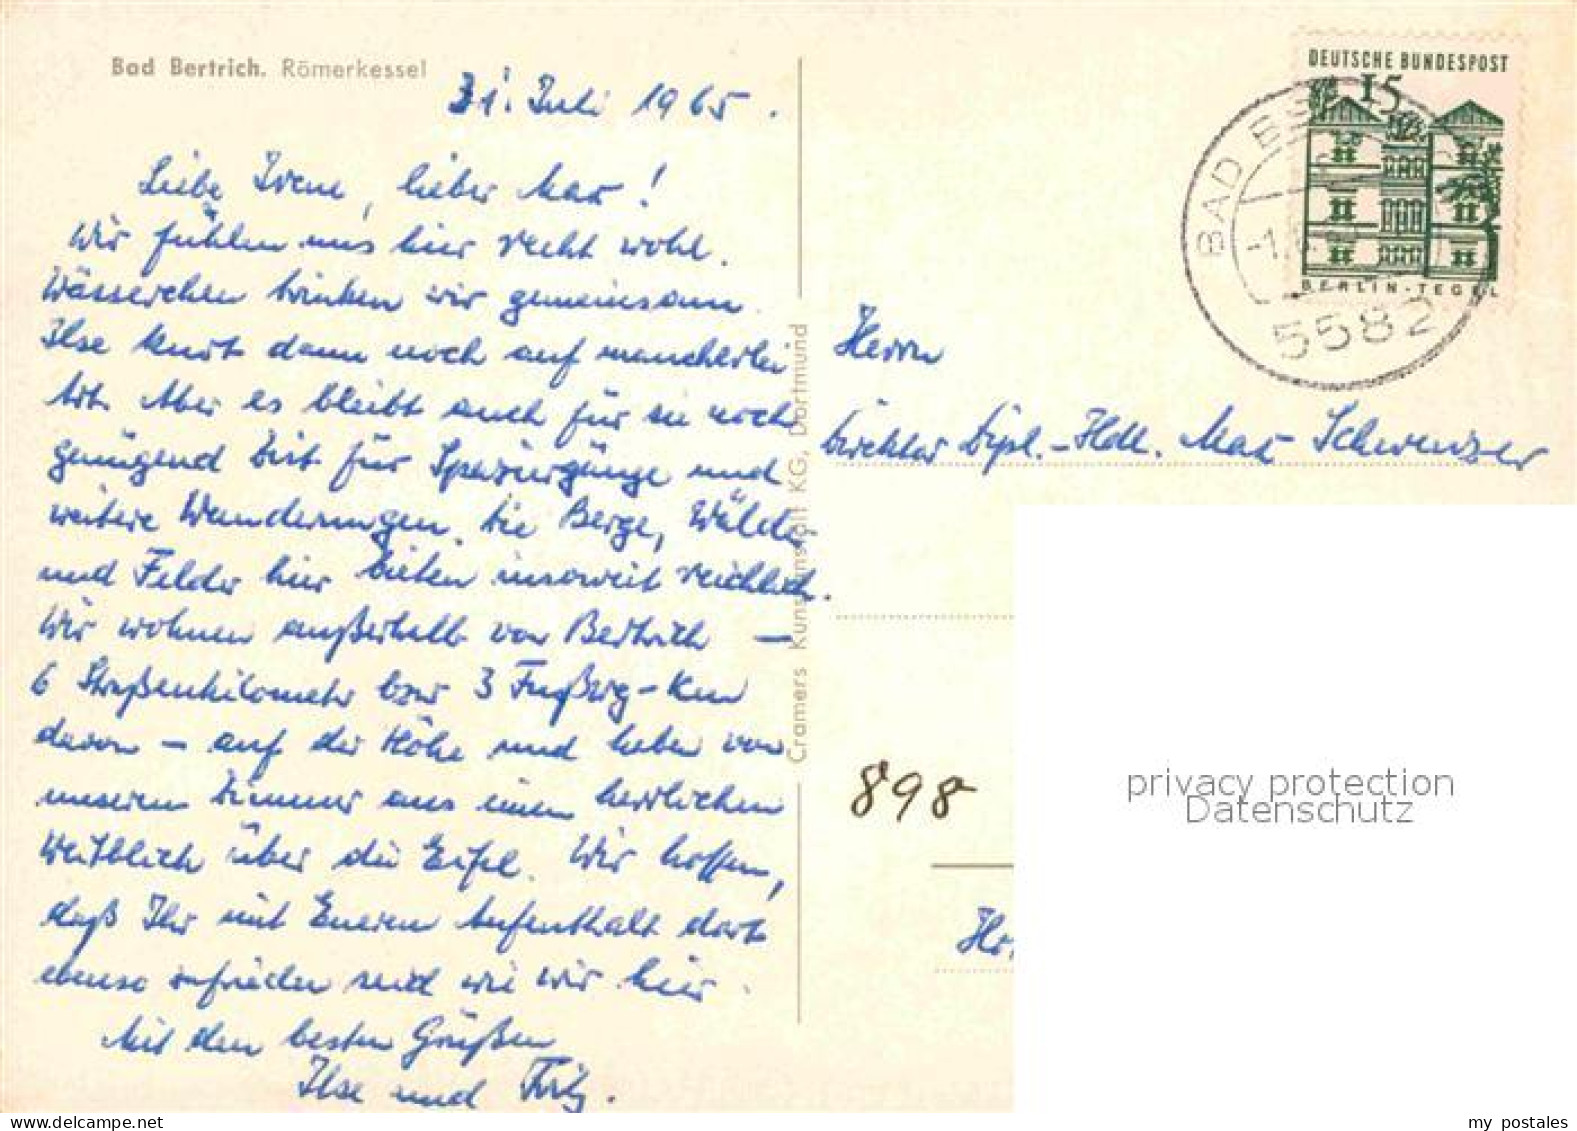 Bad Bertrich. Römerkessel
31. Juli 1965.
Liebe Irene, lieber Max!
Wir fühlen uns hier recht wohl.
Wässerchen trinken wir gemeinsam.
Ilse kurt dann noch auf mancherlei
Art. Aber es bleibt auch für sie noch
genügend Zeit für Spaziergänge und
weitere Wanderungen. Die Berge, Wälder
und Felder hier bieten insoweit reichlich.
Wir wohnen außerhalb von Bertrich –
6 Straßenkilometer bzw 3 Fußweg-Km
davon – auf der Höhe und haben von
unserem Zimmer aus einen herrlichen
Weitblick über die Eifel. Wir hoffen,
daß Ihr mit Euerem Aufenthalt dort
ebenso zufrieden seid wie wir hier.
Mit den besten Grüßen
Ilse und Fritz.
Cramers Kunstanstalt KG, Dortmund
DEUTSCHE BUNDESPOST
15
BERLIN-TEGEL
BAD BE
-1.
5582
Herrn
Direktor Dipl.-Hdl. Max Schweizer
898
privacy protection
Datenschutz
my postales